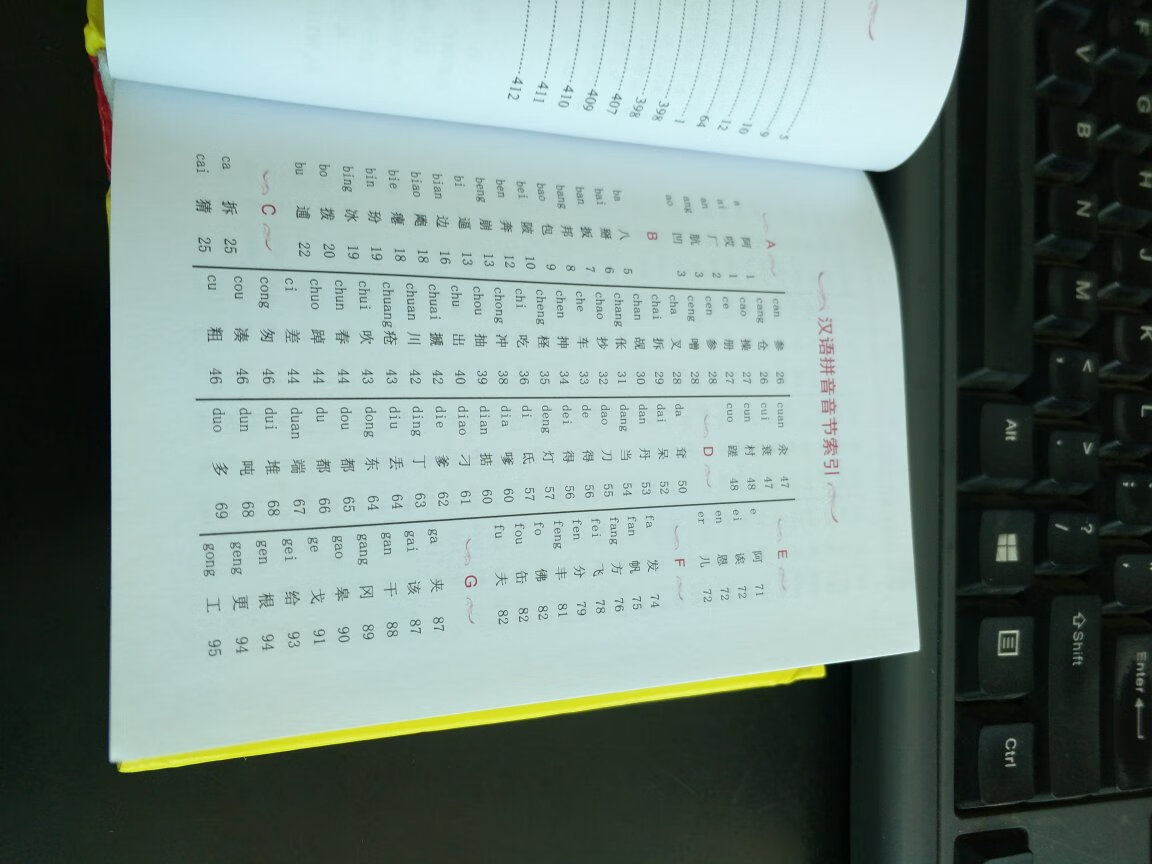 9
10
12
64
1
398
398
407
409
410
411
412
汉语拼音音节索引
A
a 阿 1
ai 哎 1
an 厂 2
ang 肮 3
ao 凹 3
B
ba 八 5
bai 掰 6
ban 扳 7
bang 邦 8
bao 包 9
bei 陂 10
ben 奔 12
beng 崩 13
bi 逼 13
bian 边 16
biao 飑 18
bie 瘪 18
bin 玢 19
bing 冰 19
bo 拨 20
bu 逋 22
C
ca 拆 25
cai 猜 25
can 参 26
cang 仓 26
cao 操 27
ce 册 27
cen 参 28
ceng 噌 28
cha 叉 28
chai 拆 29
chan 觇 30
chang 伥 31
chao 抄 32
che 车 33
chen 抻 34
cheng 柽 35
chi 吃 36
chong 冲 38
chou 抽 39
chu 出 40
chuai 搋 42
chuan 川 42
chuang 疮 43
chui 吹 43
chun 春 44
chuo 踔 44
ci 差 44
cong 匆 46
cou 凑 46
cu 粗 46
cuan 氽 47
cui 衰 47
cun 村 48
cuo 蹉 48
D
da 耷 50
dai 呆 52
dan 丹 53
dang 当 54
dao 刀 55
de 得 56
dei 得 56
deng 灯 57
di 氐 57
dia 嗲 60
dian 掂 60
diao 刁 61
die 爹 62
ding 丁 63
diu 丢 64
dong 东 64
dou 都 65
du 都 66
duan 端 67
dui 堆 68
dun 吨 68
duo 多 69
E
e 阿 71
ei 诶 72
en 恩 72
er 儿 72
F
fa 发 74
fan 帆 75
fang 方 76
fei 飞 78
fen 分 79
feng 丰 81
fo 佛 82
fou 缶 82
fu 夫 82
G
ga 夹 87
gai 该 87
gan 干 88
gang 冈 89
gao 皋 90
ge 戈 91
gei 给 93
gen 根 94
geng 更 94
gong 工 95
F
G
H
J
K
L
V
B
N
M
<
,
>
.
?
/
Alt
Shift
Enter
Ctrl